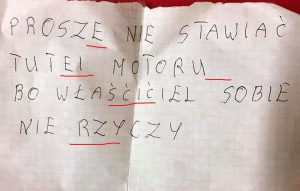 PROSZE NIE STAWIAĆ
TUTEI MOTORU
BO WŁAŚĆIĆIEL SOBIE
NIE RZYCZY